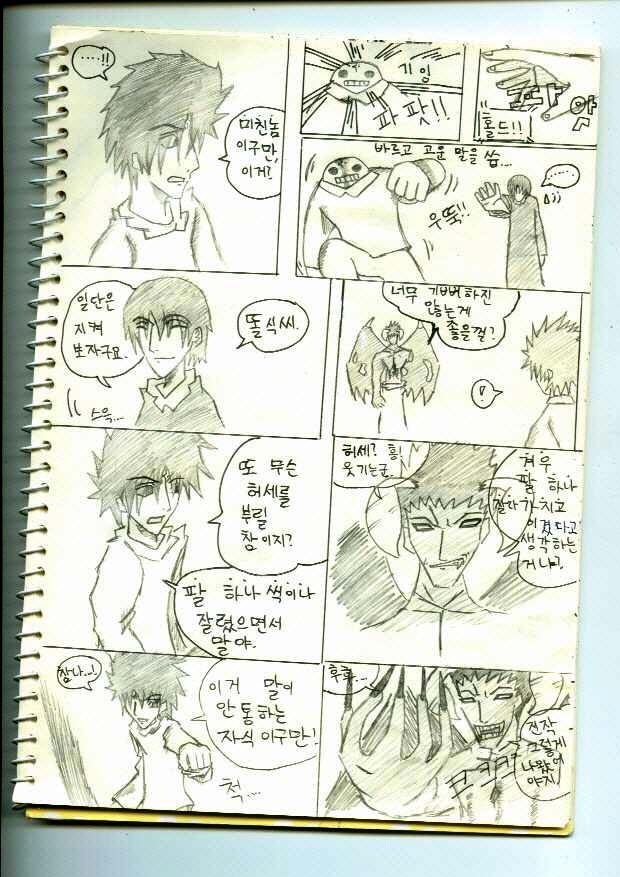 ....!!
미친놈
이구만,
이거?
기잉
파팟!!
홀드!!
바르고 고운 말을 씁...
우뚝!!
일단은
지켜
보자구요.
스윽...
똘식씨.
너무 기뻐하진
않는게
좋을걸?
또 무슨
허세를
부릴
참이지?
팔 하나씩이나
잘렸으면서
말야.
허세? 흥!
웃기는군.
겨우
팔 하나
잘라가지고
이겼다고
생각하는
거냐?
참나...!
이거 말이
안 통하는
자식이구만!
척...
후후...
진작
그렇게
나왔어
야지!
크크크크